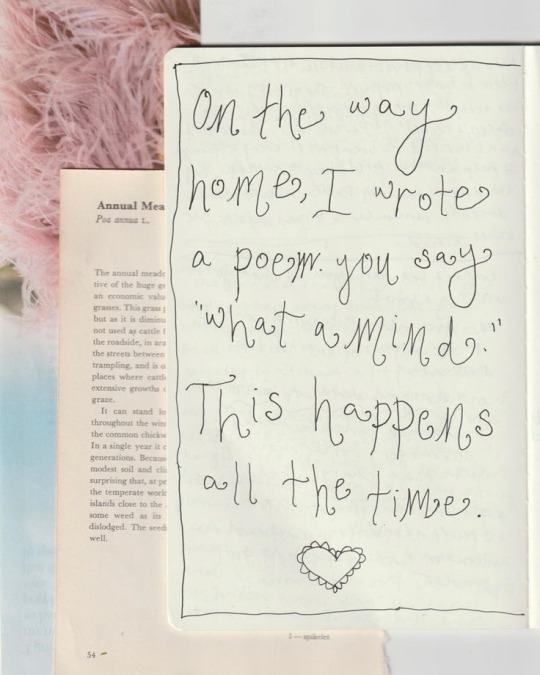 On the way
home, I wrote
a poem. you say
"what a mind."
This happens
all the time.
Annual Mea
Poa annua L.
The annual meado
tive of the huge g
an economic valu
grasses. This grass
but as it is diminu
not used as cattle f
the roadside, in ara
the streets between
trampling, and is o
places where cattl
extensive growths
graze.
It can stand lo
throughout the win
the common chickw
In a single year it c
generations. Becaus
modest soil and cli
surprising that, at pe
the temperate work
islands close to the
some weed as its
dislodged. The seed
well.
1 — spikelet
54